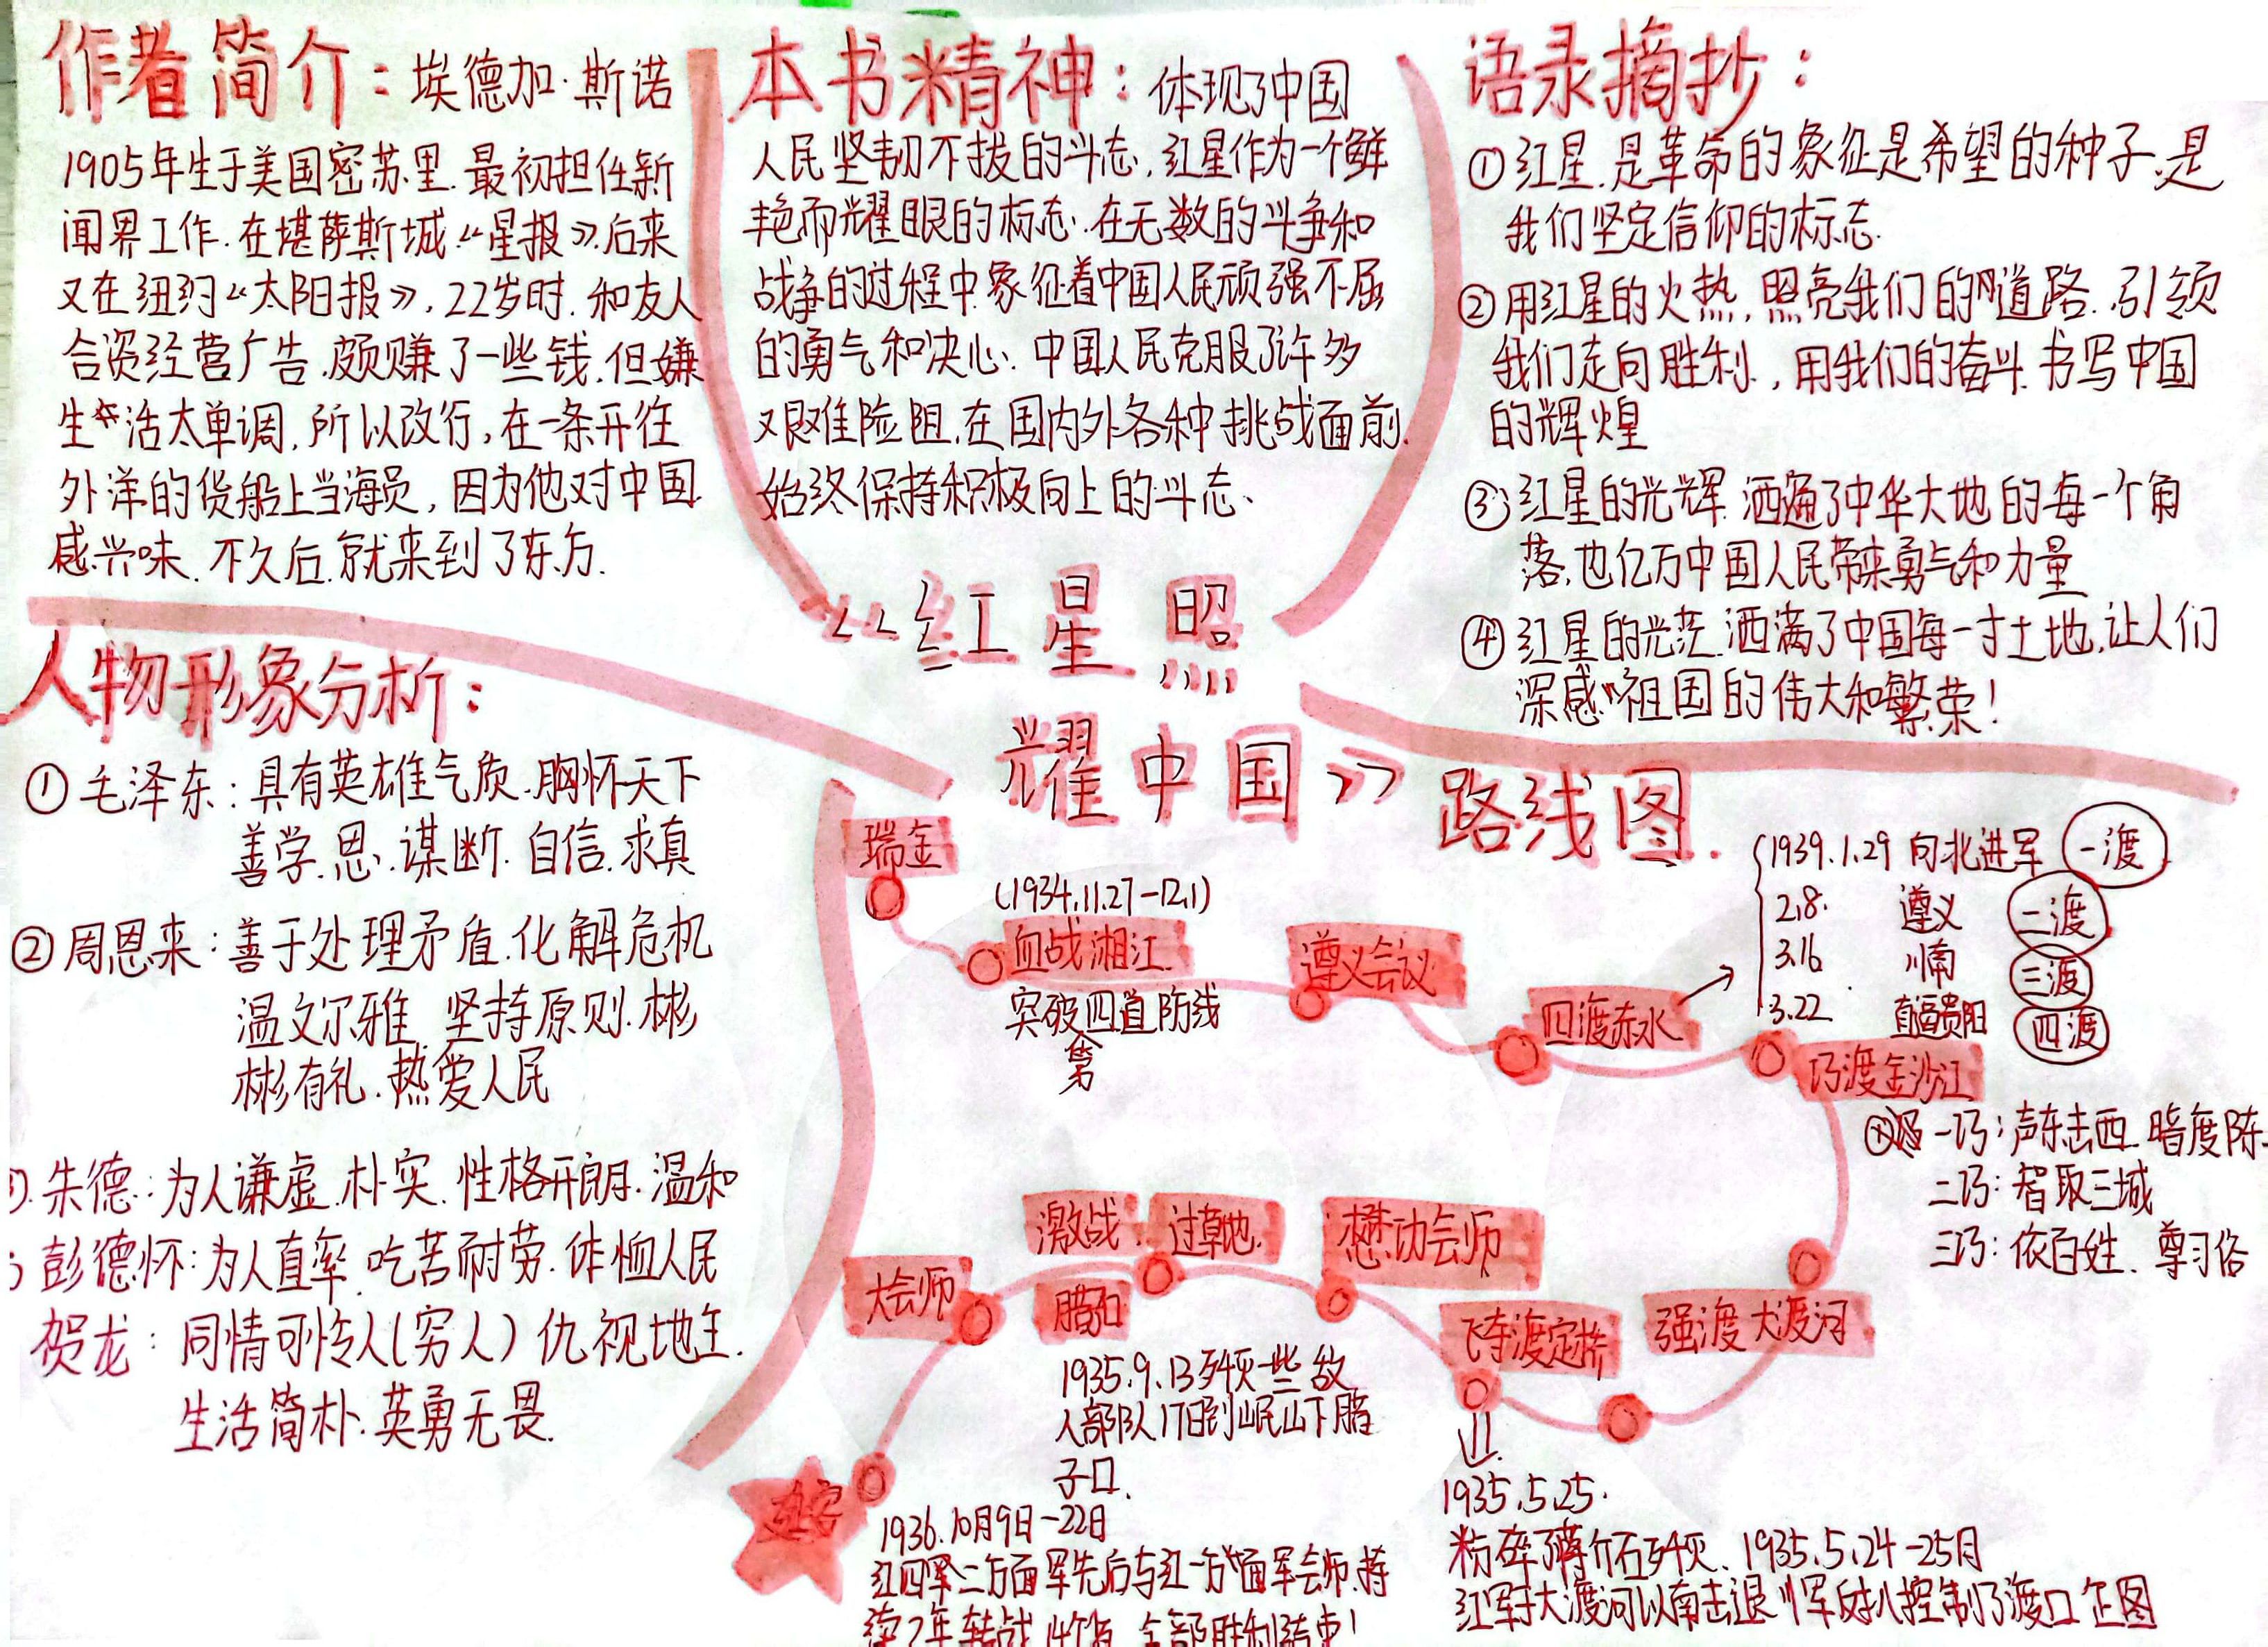 作者简介：埃德加·斯诺
1905年生于美国密苏里.最初担任新
闻界工作.在堪萨斯城《星报》.后来
又在纽约《太阳报》,22岁时.和友人
合资经营广告.颇赚了一些钱.但嫌
生活太单调,所以改行,在一条开往
外洋的货船上当海员,因为他对中国
感兴味.不久后.就来到了东方.
本书精神：体现了中国
人民坚韧不拔的斗志,红星作为一个鲜
艳而耀眼的标志.在无数的斗争和
战争的过程中.象征着中国人民顽强不屈
的勇气和决心.中国人民克服了许多
艰难险阻.在国内外各种挑战面前.
始终保持积极向上的斗志、
语录摘抄：
①红星.是革命的象征是希望的种子.是
我们坚定信仰的标志.
②用红星的火热,照亮我们的道路.引领
我们走向胜利.,用我们的奋斗.书写中国
的辉煌
③红星的光辉.洒遍了中华大地的每一个角
落.也亿万中国人民带来勇气和力量
④红星的光茫.洒满了中国每一寸土地,让人们
深感祖国的伟大和繁荣！
《红星照
耀中国》
人物形象分析：
①毛泽东：具有英雄气质.胸怀天下
善学.思.谋断.自信.求真
②周恩来：善于处理矛盾.化解危机
温文尔雅.坚持原则.彬
彬有礼.热爱人民
朱德：为人谦虚.朴实.性格开朗.温和
彭德怀：为人直率.吃苦耐劳.体恤人民
贺龙：同情可怜人(穷人)仇视地主.
生活简朴.英勇无畏.
路线图.
瑞金
(1934.11.27-12.1)
血战湘江.
突破四道防线
第
遵义会议
四渡赤水
1939.1.29 向北进军 一渡
2.8. 遵义 二渡
3.16 川南 三渡
3.22 直逼贵阳 四渡
巧渡金沙江
一巧：声东击西.暗度陈
二巧：智取三城
三巧：依百姓.尊习俗
强渡大渡河
飞夺渡定桥
1935.5.25.
粉碎了蒋介石歼灭.1935.5.24-25日
红军于大渡河以南击退川军反扑控制了渡口
懋功会师
过草地.
激战
腊子口
1935.9.13歼灭一些敌
人部队17日到岷山下腊
子口.
大会师
1936.10月9日-22日
红四军二方面军先后与红一方面军会师.持
续2年转战14个省.全部胜利结束！